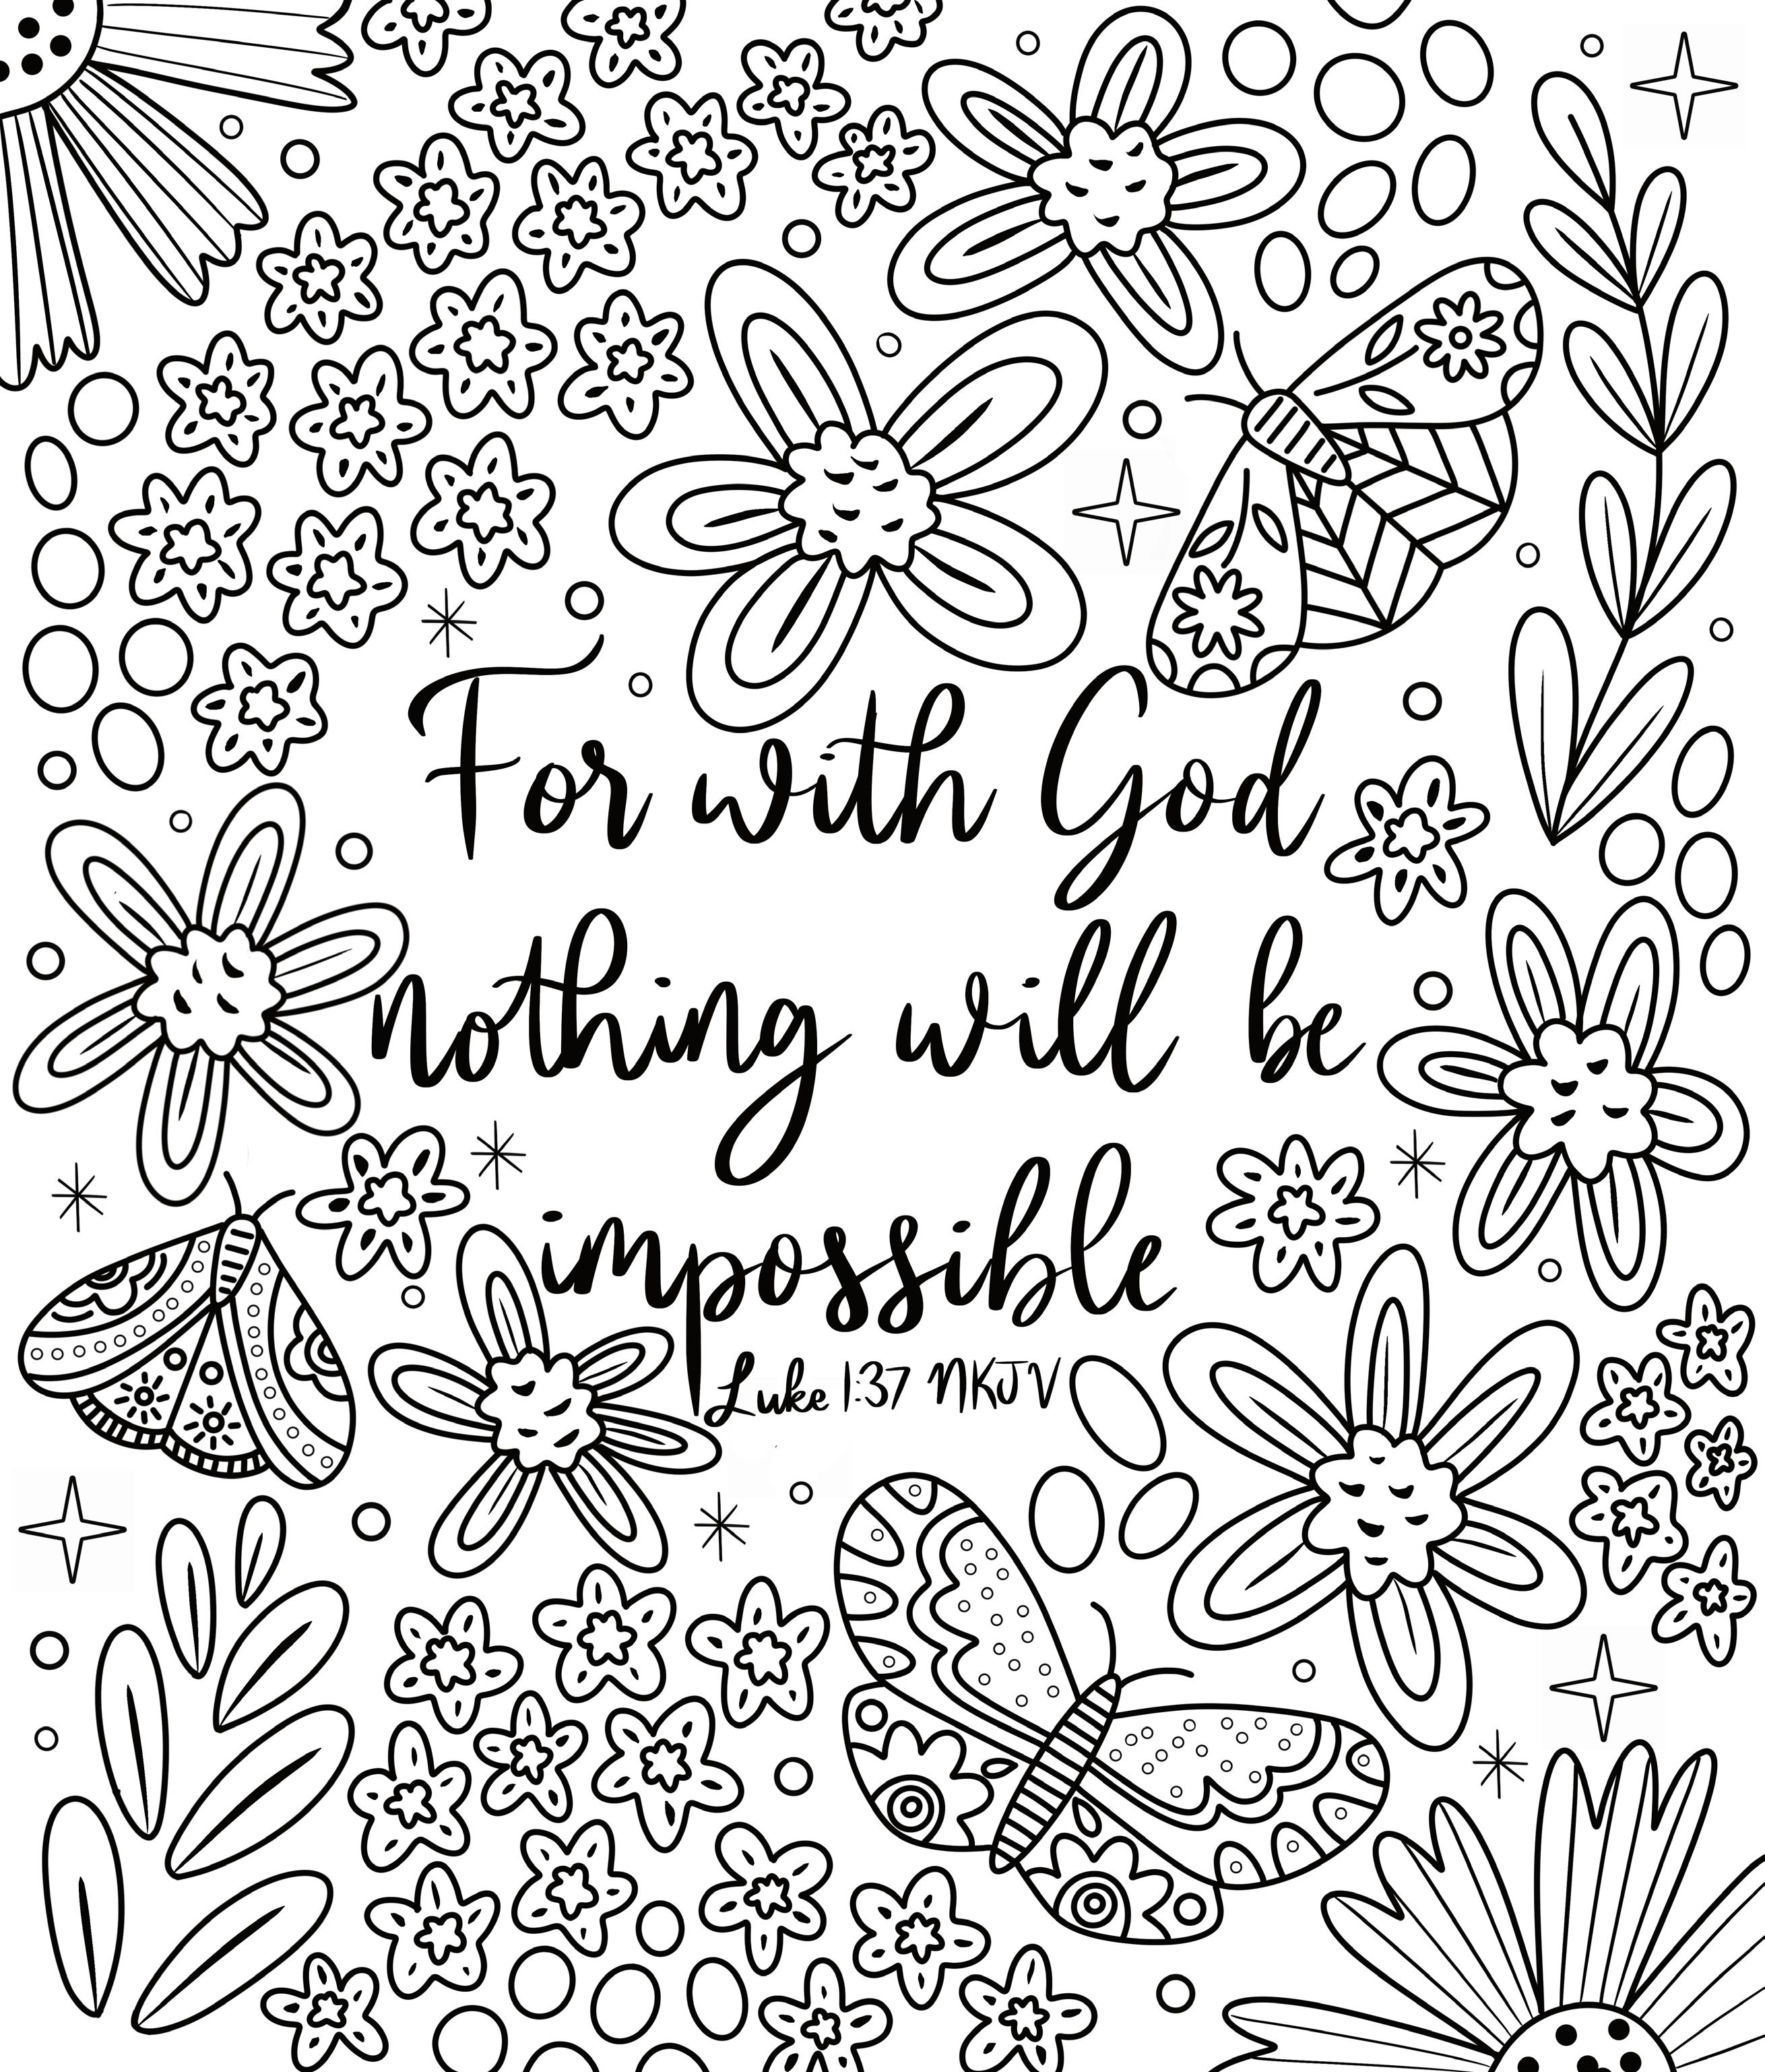 For with God
nothing will be
impossible
Luke 1:37 NKJV